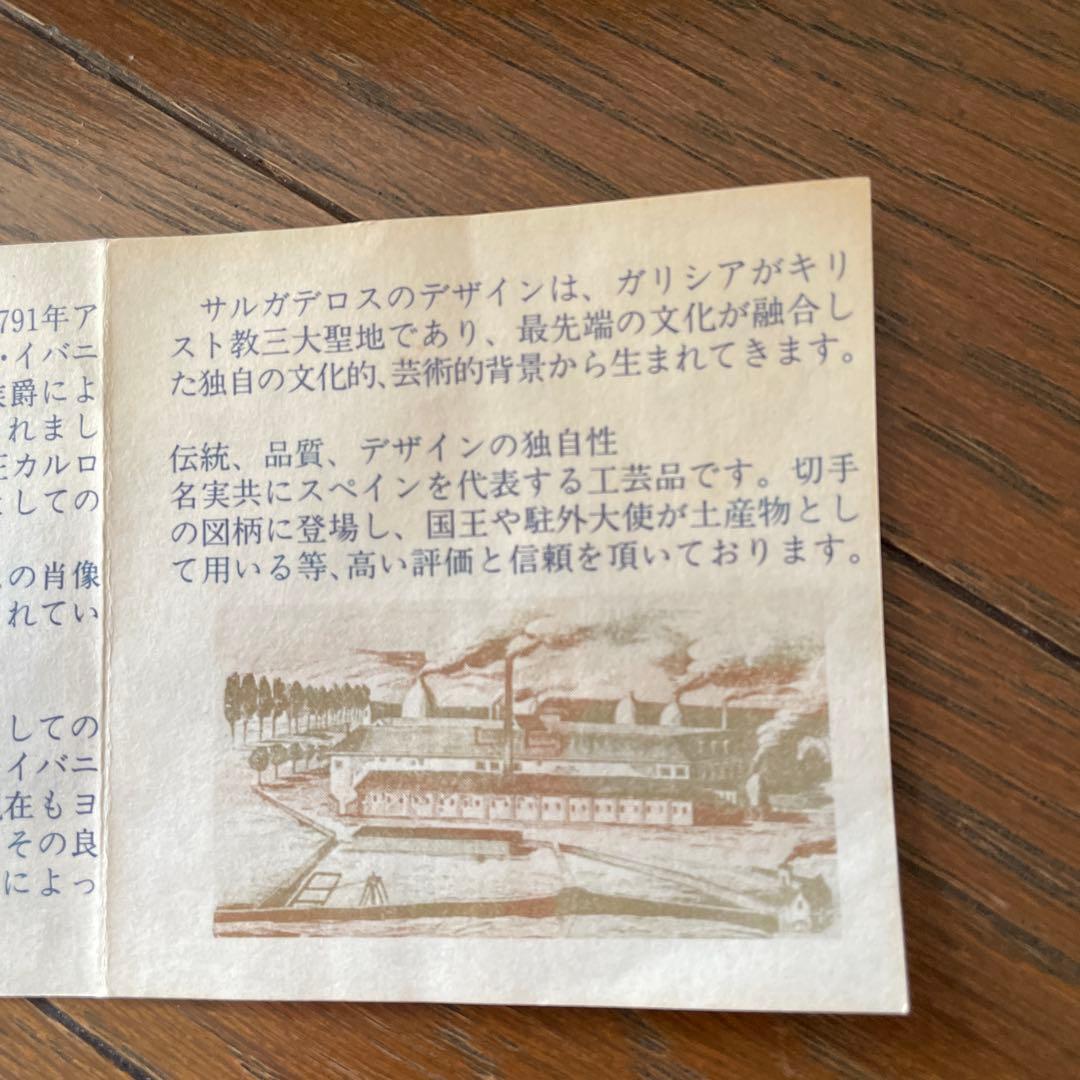 791年ア
・イバニ
爵によ
れまし
カルロ
しての
の肖像
れてい
しての
イバニ
在もヨ
その良
によっ
サルガデロスのデザインは、ガリシアがキリ
スト教三大聖地であり、最先端の文化が融合し
た独自の文化的、芸術的背景から生まれてきます。
伝統、品質、デザインの独自性
名実共にスペインを代表する工芸品です。切手
の図柄に登場し、国王や駐外大使が土産物とし
て用いる等、高い評価と信頼を頂いております。